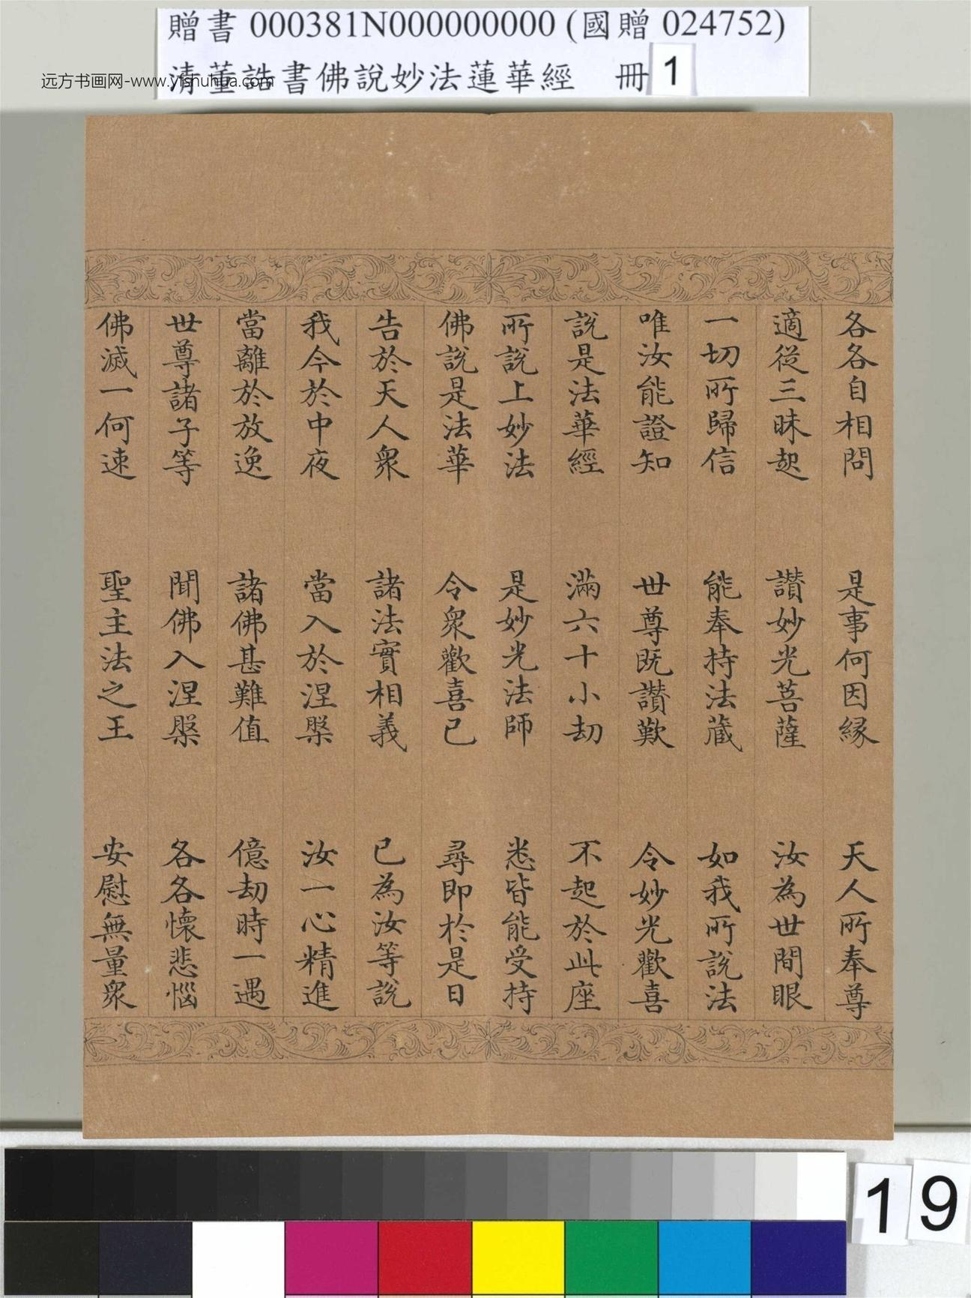 贈書 000381N000000000 (國贈 024752)
清董誥書佛說妙法蓮華經 冊 1
远方书画网-www.yishuhua.com
各各自相問 是事何因緣 天人所奉尊
適從三昧起 讚妙光菩薩 汝為世間眼
一切所歸信 能奉持法藏 如我所說法
唯汝能證知 世尊既讚歎 令妙光歡喜
說是法華經 滿六十小劫 不起於此座
所說上妙法 是妙光法師 悉皆能受持
佛說是法華 令眾歡喜已 尋即於是日
告於天人眾 諸法實相義 已為汝等說
我今於中夜 當入於涅槃 汝一心精進
當離於放逸 諸佛甚難值 億劫時一遇
世尊諸子等 聞佛入涅槃 各各懷悲惱
佛滅一何速 聖主法之王 安慰無量眾
19